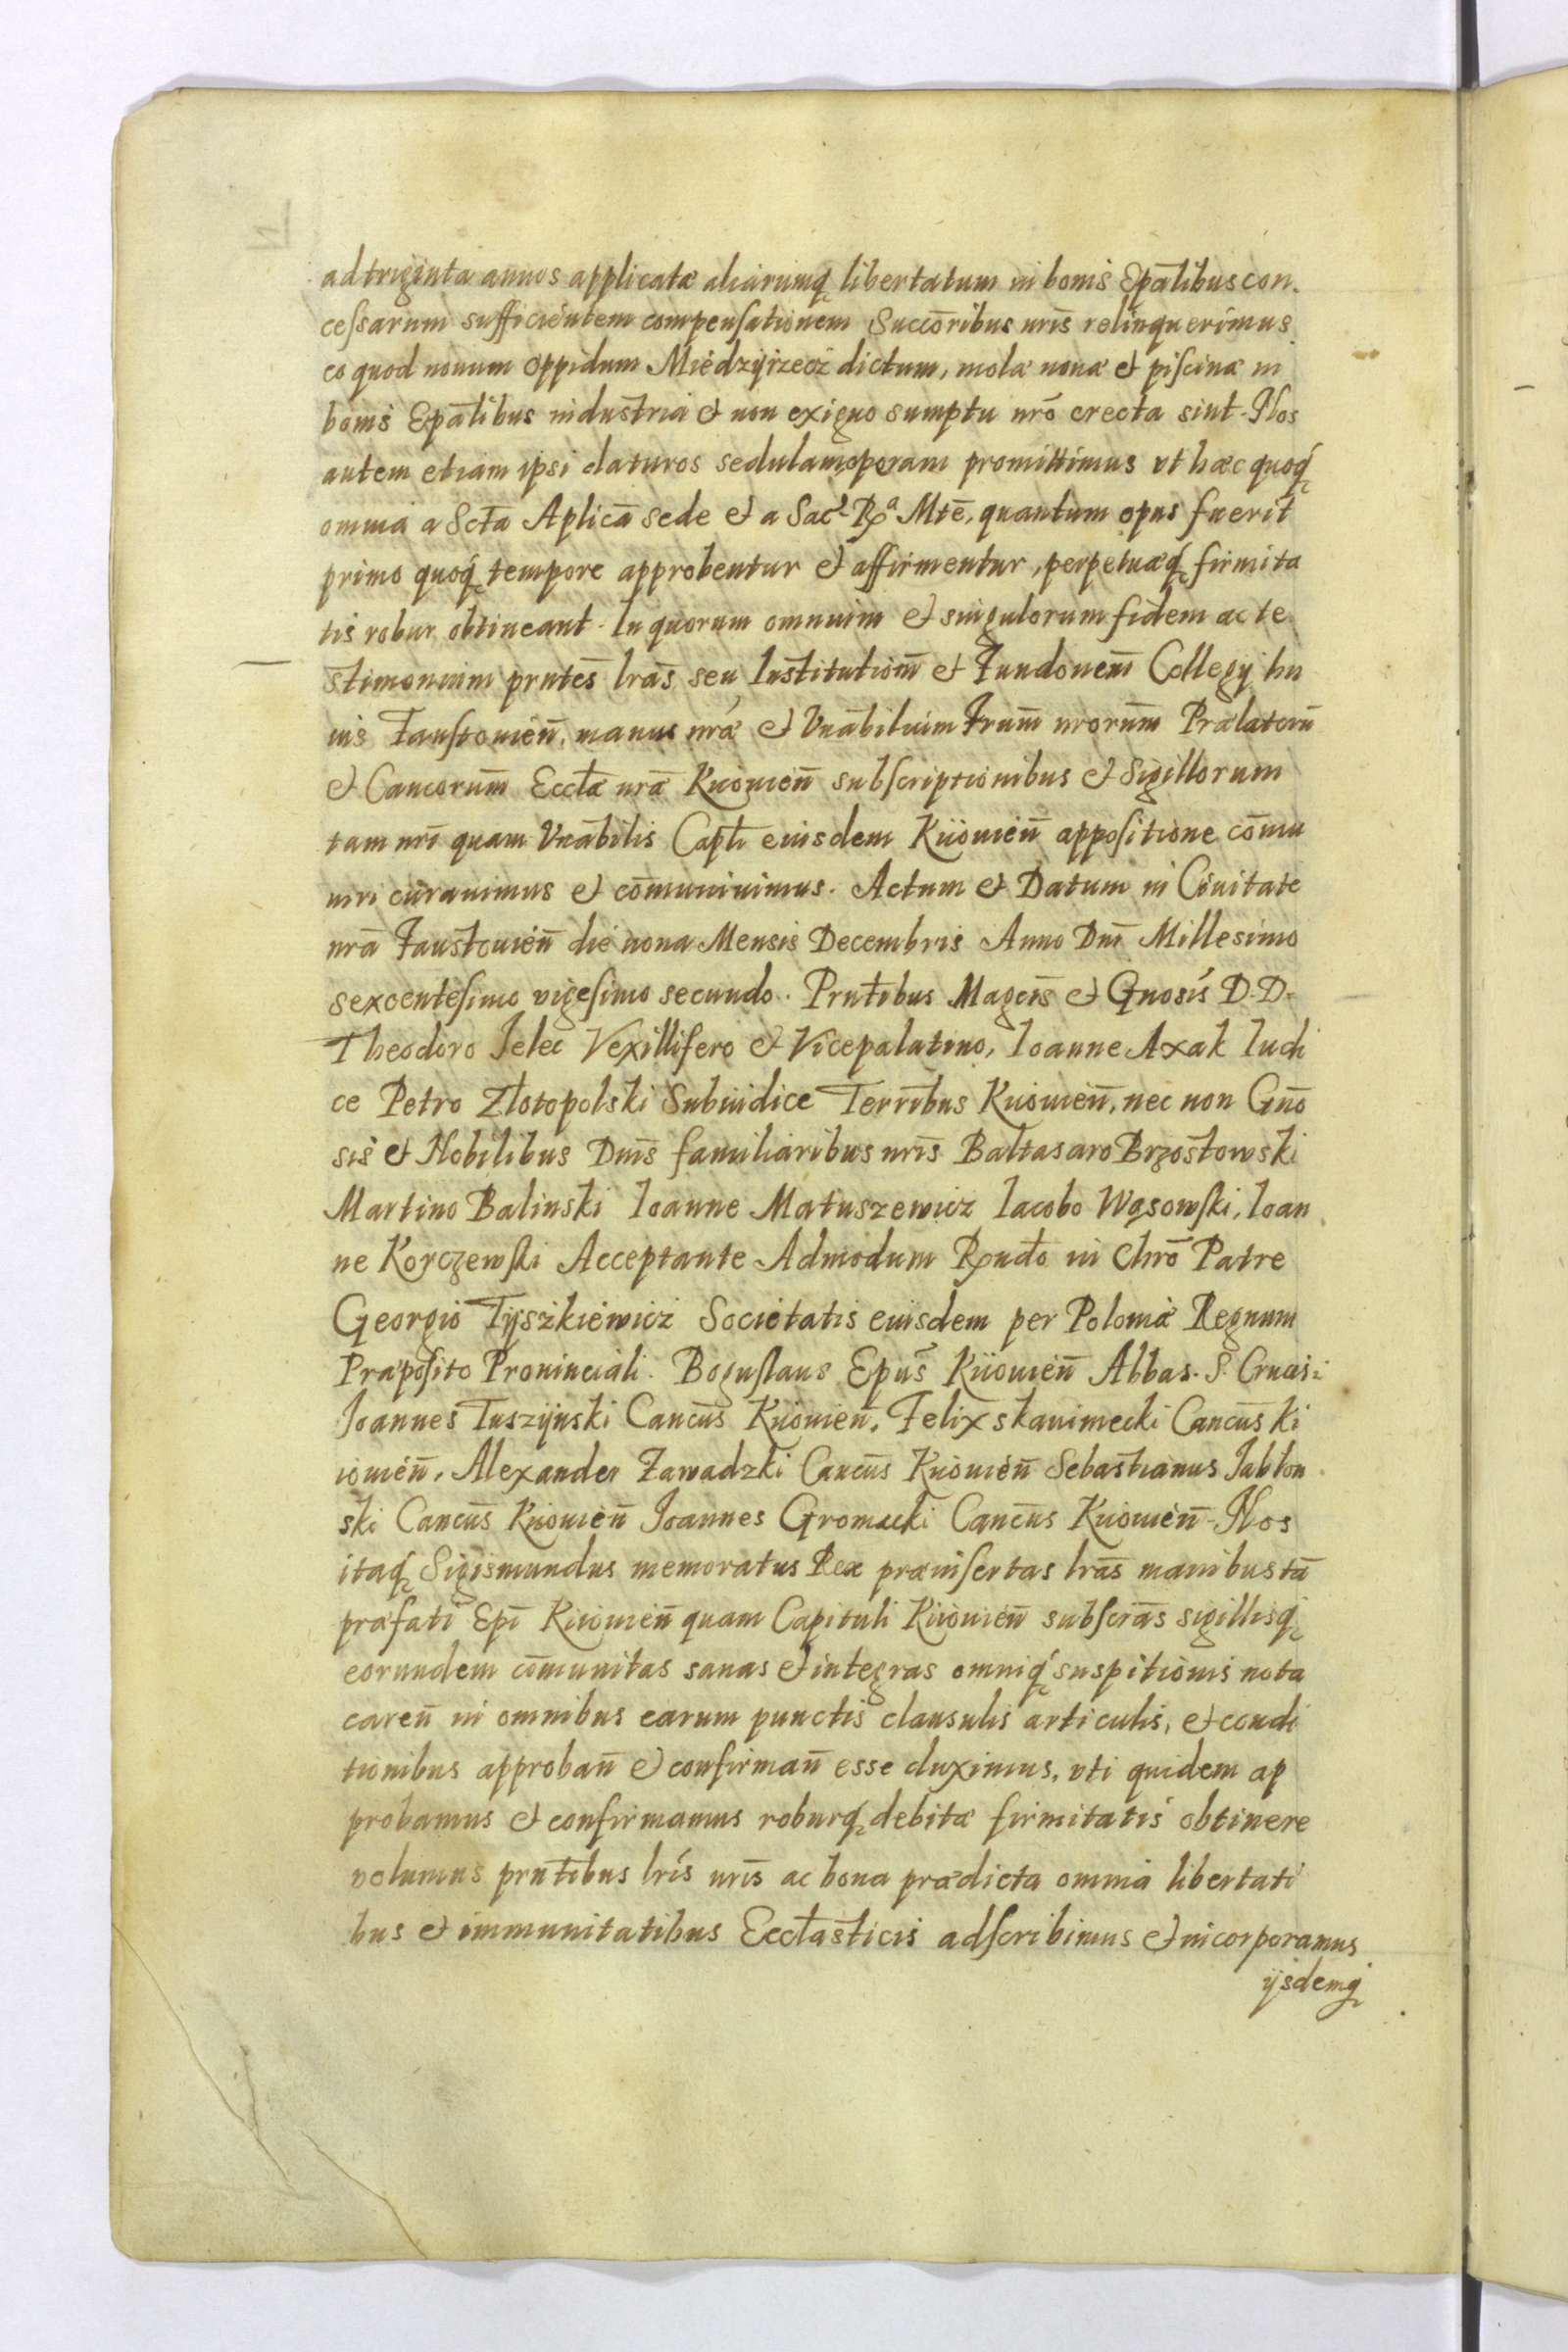 ad triginta annos applicatæ aliarumq́ libertatum in bonis Epālibus con-
cessarum sufficientem compensationem Succōribus nrīs relinquerimus
eo quod nouum oppidum Miedzyrzecz dictum, molæ nouæ et piscinæ in
bonis Epālibus industria et non exiguo sumptu nrō erecta sint. Nos
autem etiam ipsi daturos sedulam operam promittimus vt hæc quoq́
omnia a Sctā Aplicā sede et a Sac. Rᵃ Mtē, quantum opus fuerit
primo quoq́ tempore approbentur et affirmentur, perpetuæq́ firmita
tis robur obtineant. In quorum omnium et singulorum fidem ac te
stimonium pr̄ntes lrās seu Institutiom̄ et Fundonem̄ Collegij hu
ius Faustouien̄. manus nræ et Vnābilium Frum̄ nrorum̄ Prælatorū
et Cancorum̄ Ecctæ nræ Kiiouien̄ subscriptionibus et Sigillorum
tam nrī quam Vnābilis Capli eiusdem Kiiouien̄ appositione cōmu
niri curauimus et cōmuniuimus. Actum et Datum in Ciuitate
nrā Faustouien̄ die nona Mensis Decembris Anno Dnī Millesimo
sexcentesimo vigesimo secundo. Prntibus Magcis et Gnosis D. D.
Theodoro Jelec Vexillifero et Vicepalatino, Ioanne Axak Iudi
ce Petro Złotopolski Subiudice Terribus Kiiouien̄, nec non Gn̄o
sis et Nobilibus Dnīs familiaribus nrīs Baltasaro Brzostowski
Martino Balinski Ioanne Matuszewicz Iacobo Wąsowski, Ioan
ne Korczewski Acceptante Admodum Rṇdo in Chrō Patre
Georgio Tyszkiewicz Societatis eiusdem per Poloniæ Regnum
Præposito Prouinciali. Boguslaus Epūs Kiiouien̄ Abbas. S. Crucis.
Joannes Tuszynski Cancūs Kiiouien̄, Felix skanimecki Cancūs Ki
iouien̄, Alexander Zawadzki Cancūs Kiiouien̄ Sebastianus Jabłon
ski Cancūs Kiiouien̄ Joannes Gromacki Cancūs Kiiouien̄. Nos
itaq́ Sigismundus memoratus Rex præinsertas lrās manibus tā
præfati Epī Kiiouien̄ quam Capituli Kiiouien̄ subscrās sigillisq́
eorundem cōmunitas sanas et integras omniq́ suspitionis nota
caren̄ in omnibus earum punctis clausulis articulis, et condi
tionibus approban̄ et confirman̄ esse duximus, vti quidem ap
probamus et confirmamus roburq́ debitæ firmitatis obtinere
volumus pr̄ntibus lrīs nrīs ac bona prædicta omnia libertati
bus et immunitatibus Ecctāsticis adscribimus et incorporamus
ijsdemq́